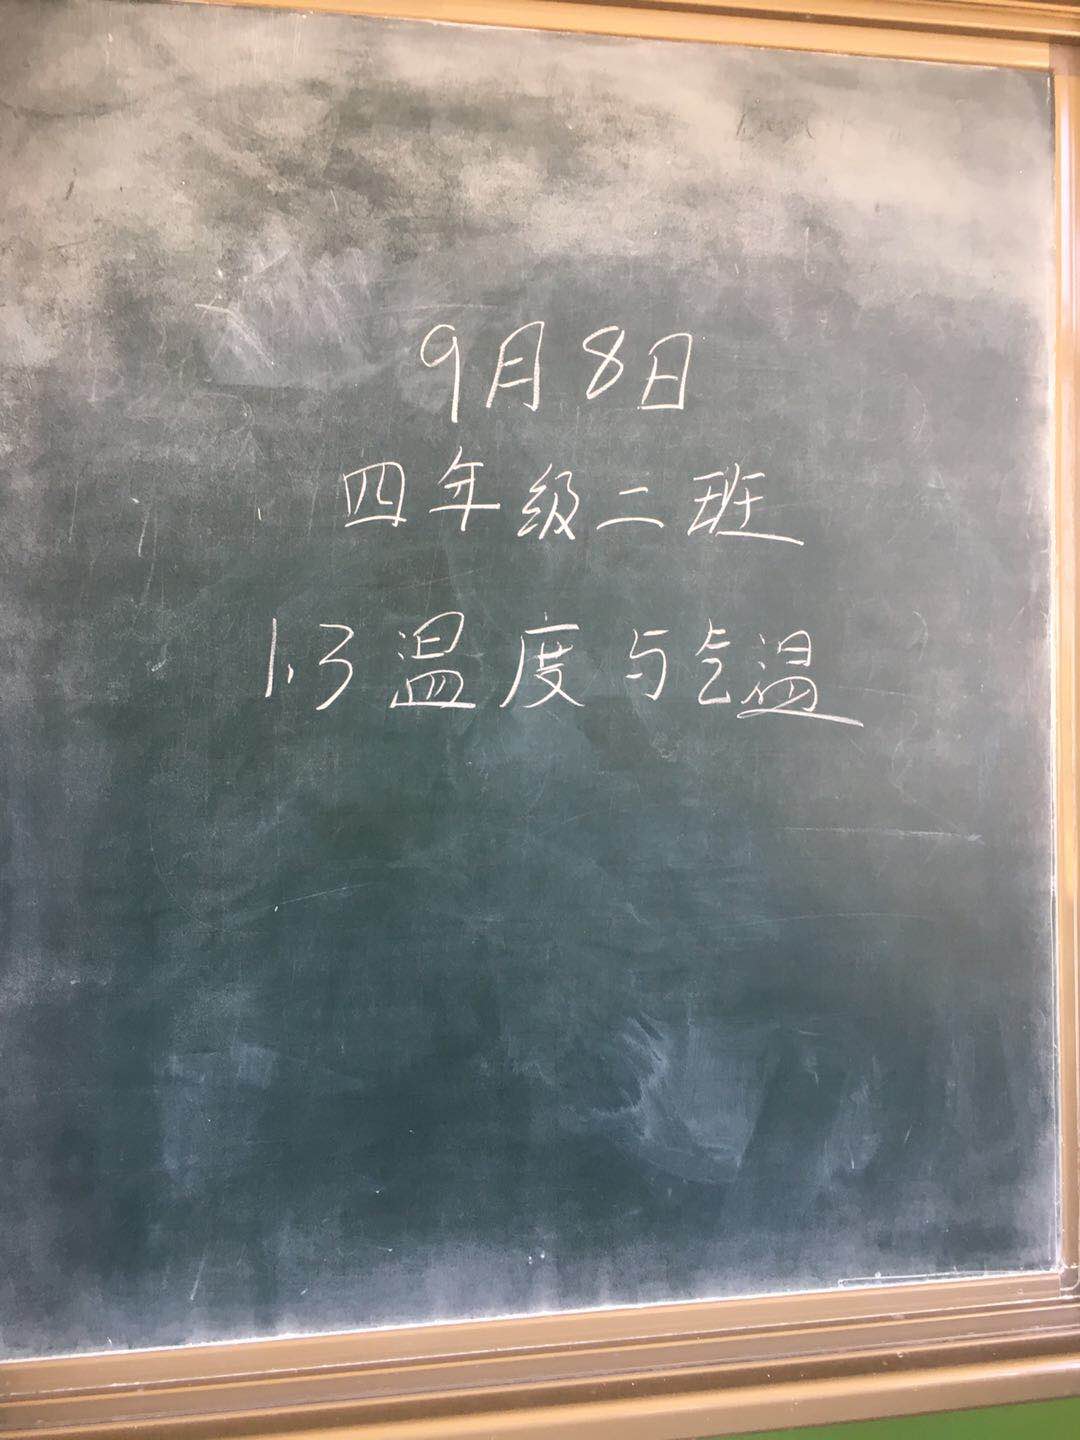 9月8日
四年级二班
1.3温度与气温